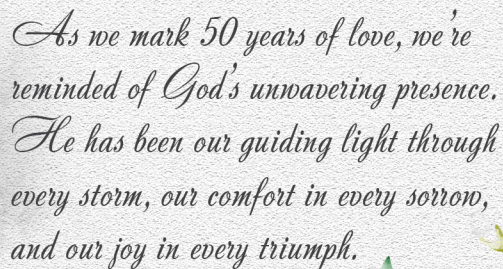 As we mark 50 years of love, we're
reminded of God's unwavering presence.
He has been our guiding light through
every storm, our comfort in every sorrow,
and our joy in every triumph.